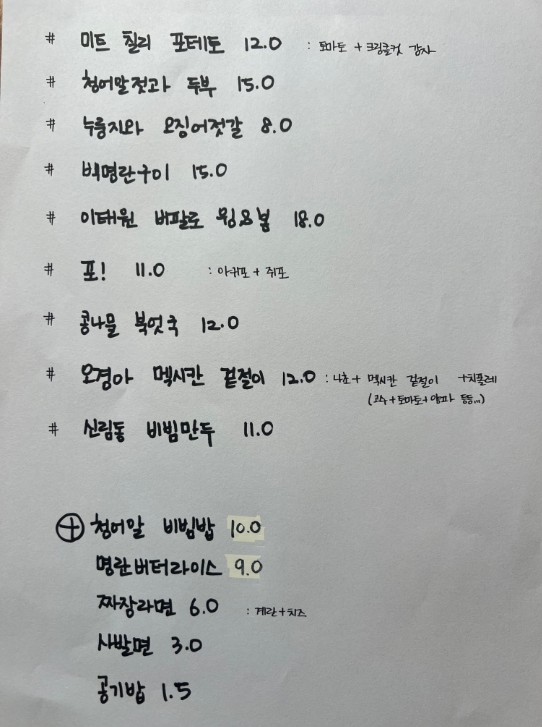 # 미트 칠리 포테토 12.0 : 토마토 + 크링클컷 감자
# 청어알젓과 두부 15.0
# 누룽지와 오징어젓갈 8.0
# 백명란구이 15.0
# 이태원 버팔로 윙&봉 18.0
# 포! 11.0 : 아귀포 + 쥐포
# 콩나물 북엇국 12.0
# 오경아 멕시칸 겉절이 12.0 : 나쵸 + 멕시칸 겉절이 +치폴레
(고수+토마토+양파 등등...)
# 신림동 비빔만두 11.0
⊕ 청어알 비빔밥 10.0
명란버터라이스 9.0
짜장라면 6.0 : 계란+치즈
사발면 3.0
공기밥 1.5